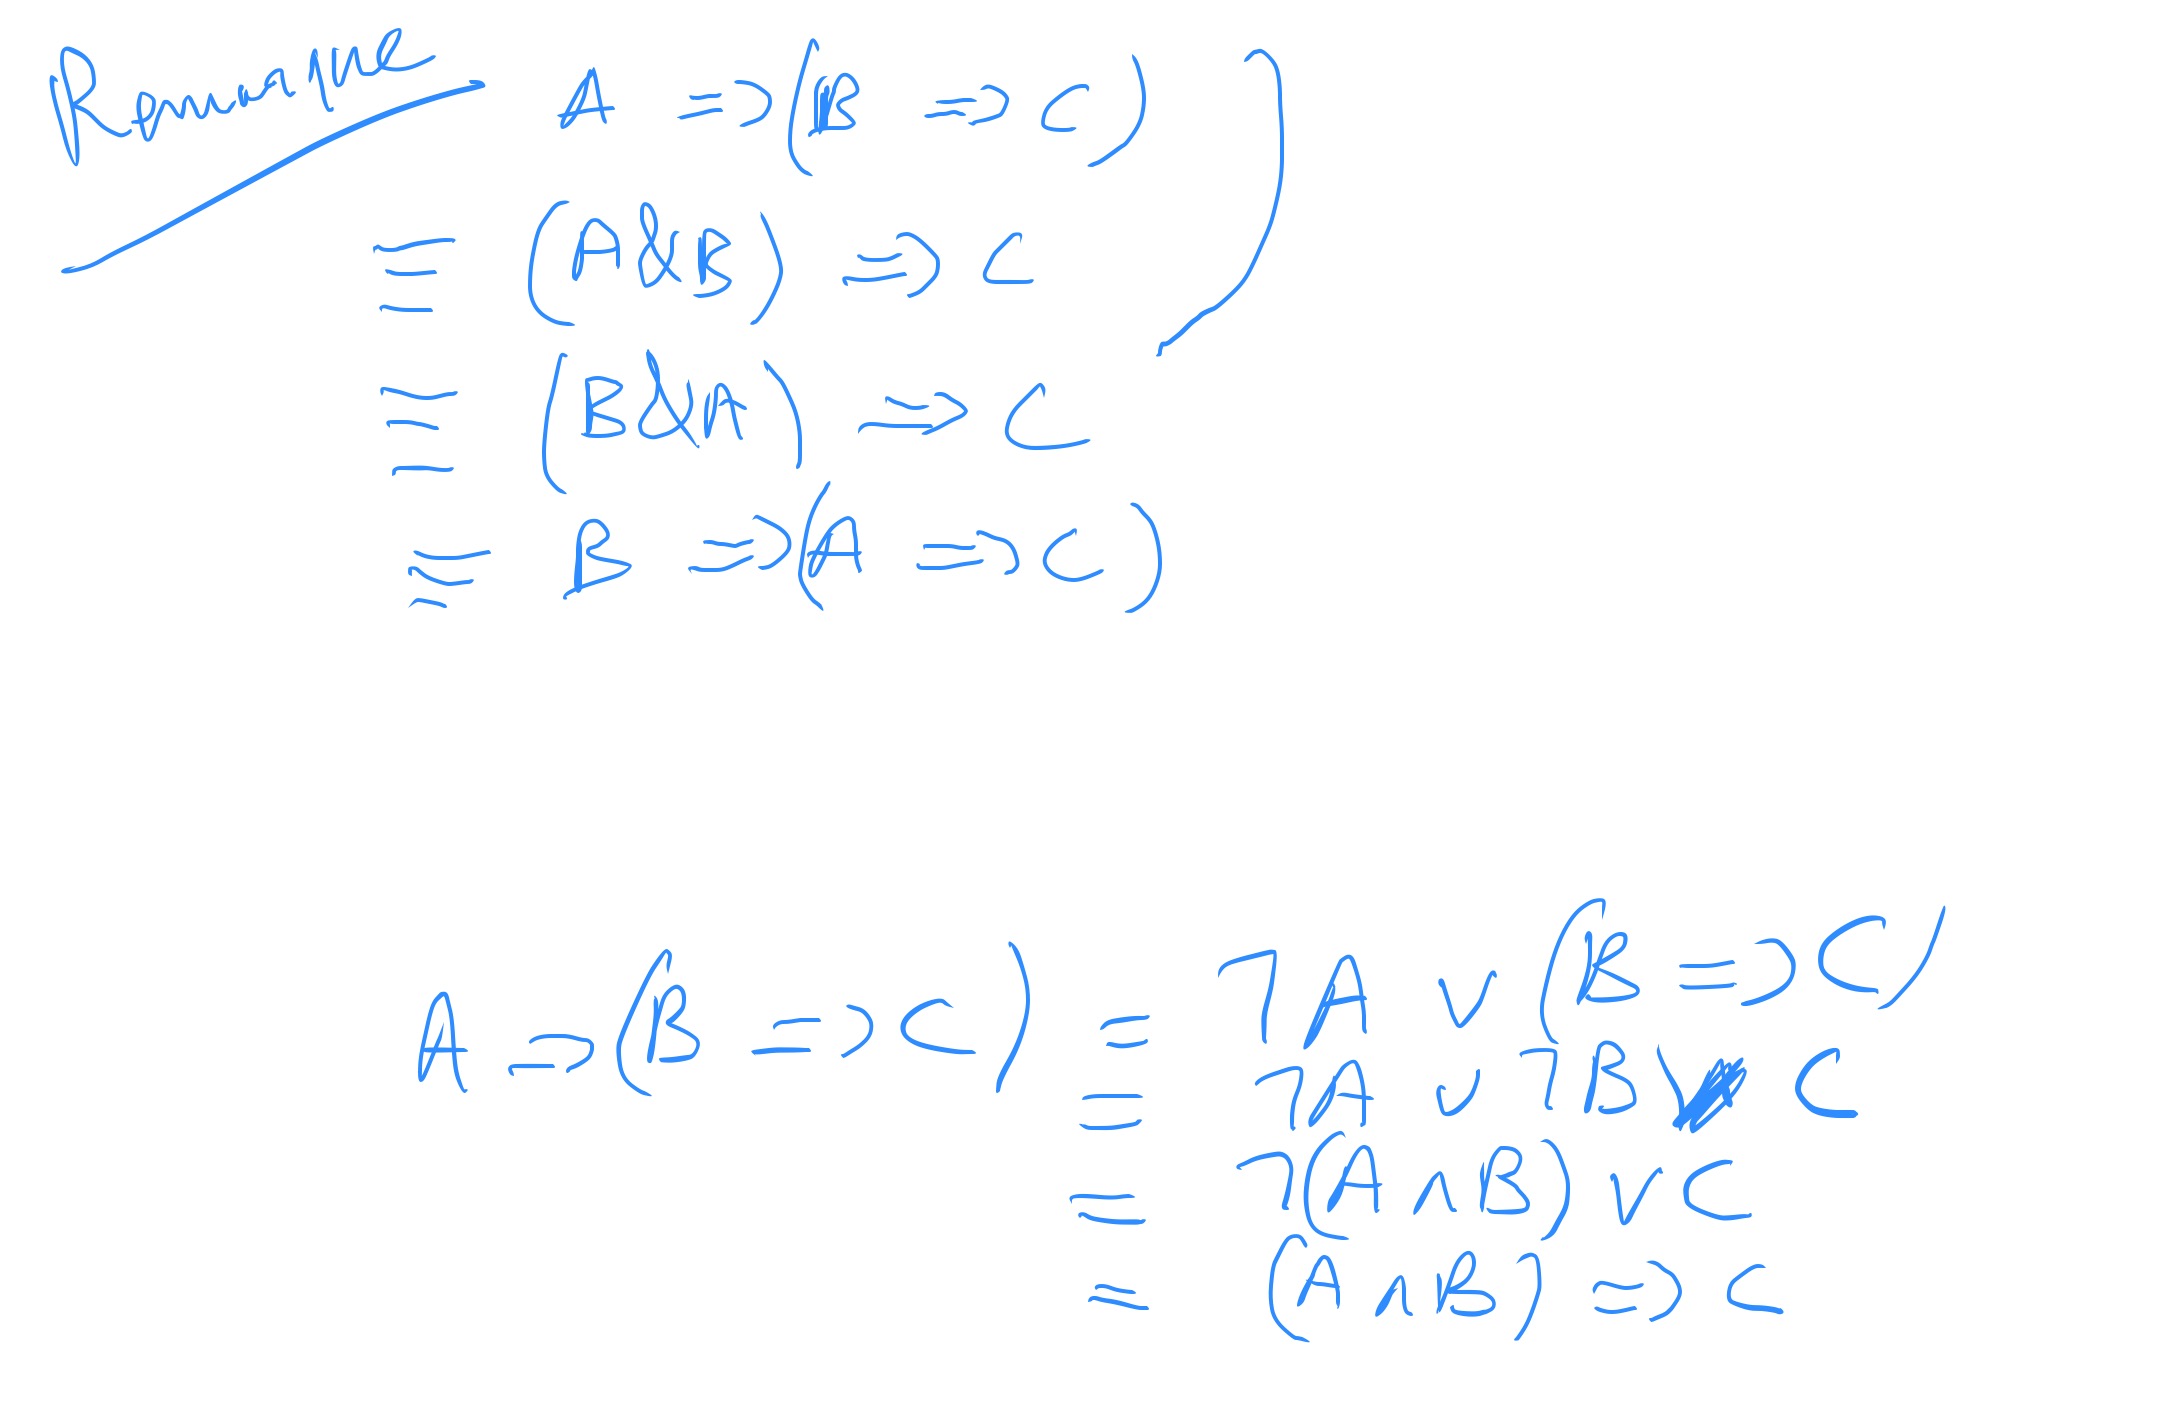 Remarque A => (B => C)
≡ (A & B) => C
≡ (B & A) => C
≡ B => (A => C)
A => (B => C) = ¬A ∨ (B => C)
= ¬A ∨ ¬B ∨ C
= ¬(A ∧ B) ∨ C
= (A ∧ B) => C